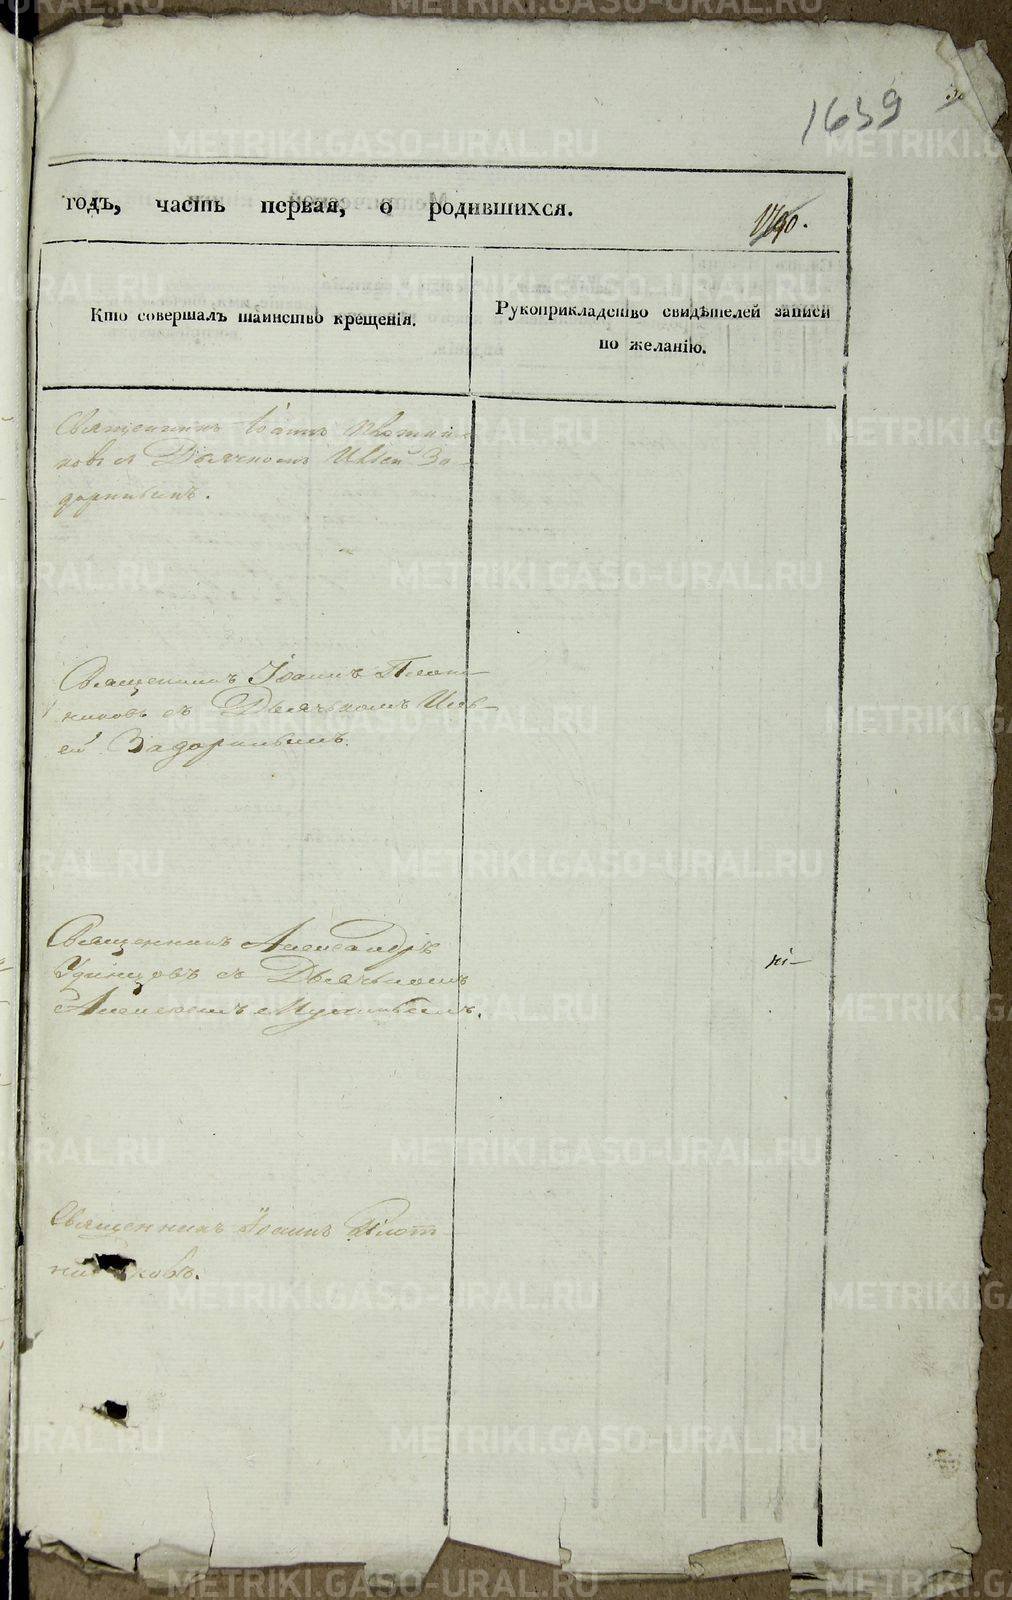 1639
годъ, часть первая, о родившихся.
Кто совершалъ таинство крещенія.
Рукоприкладство свидѣтелей записи
по желанію.
Священникъ Іоаннъ Плотни-
ковъ съ Дьячкомъ Ивсей За-
доринымъ.
Священникъ Іоаннъ Плот-
никовъ съ Дьячкомъ Иев-
сей Задоринымъ.
Священникъ Александръ
Удинцовъ съ Дьячкомъ
Алексеемъ
Священникъ Іоаннъ Плот-
никовъ.
METRIKI.GASO-URAL.RU